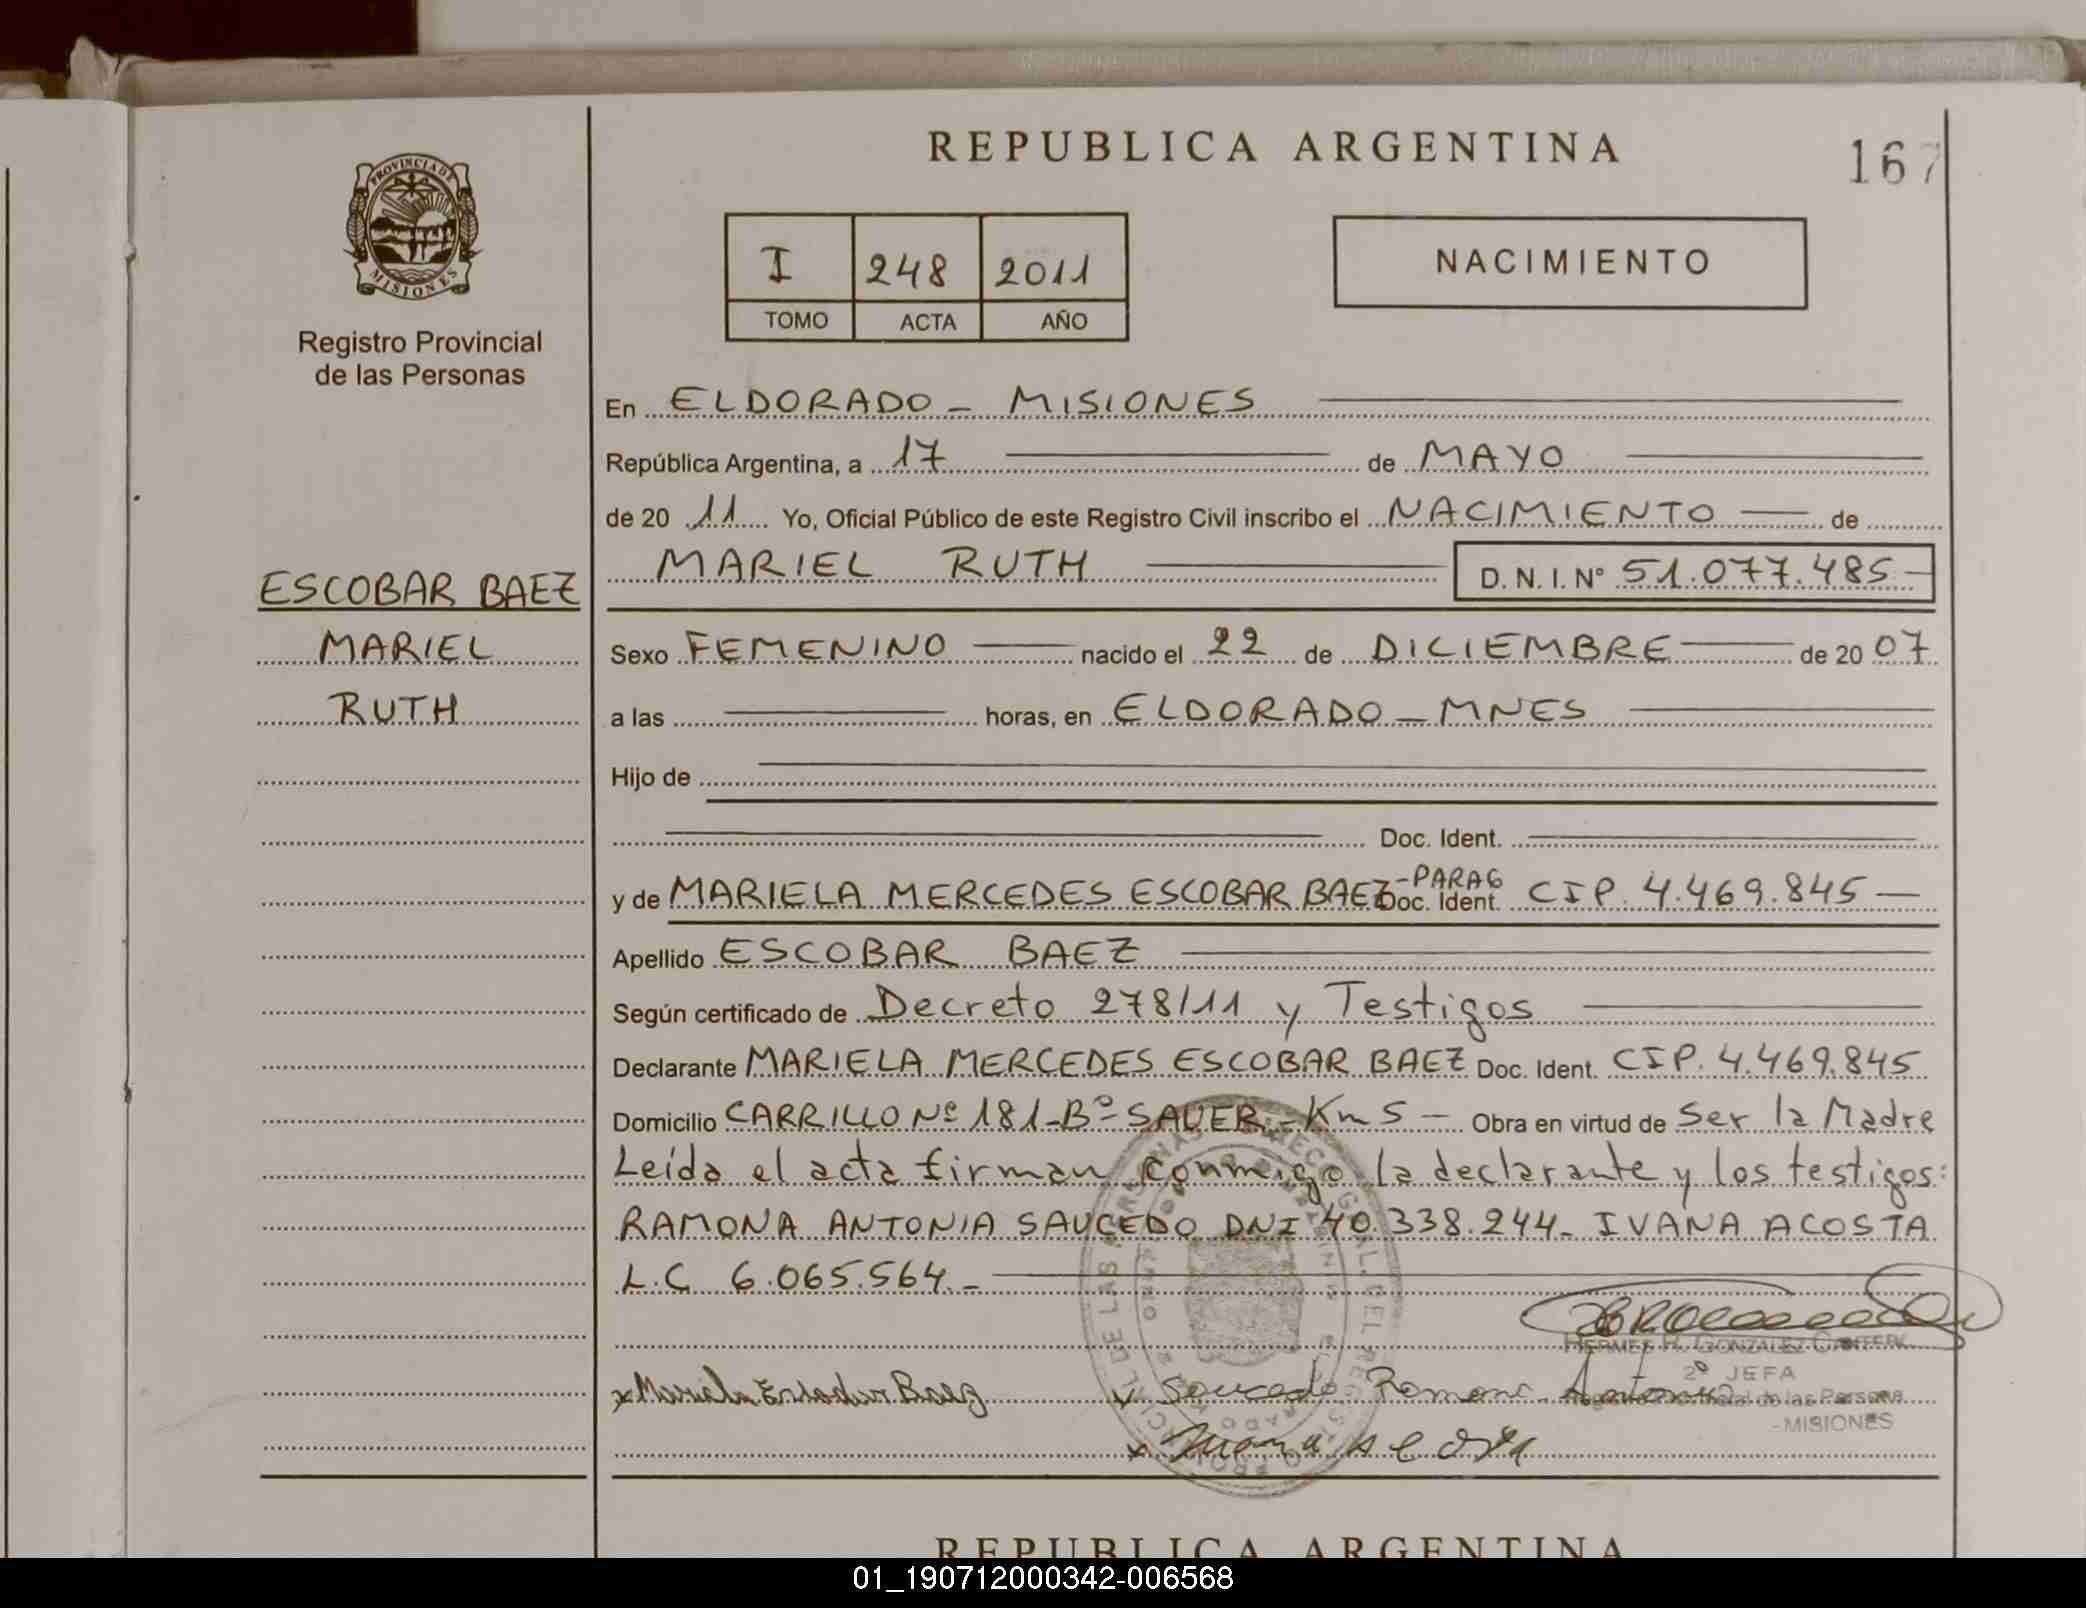 REPUBLICA ARGENTINA
167
PROVINCIA DE
MISIONES
Registro Provincial
de las Personas
I 248 2011
TOMO ACTA AÑO
NACIMIENTO
En ELDORADO - MISIONES
República Argentina, a 17 de MAYO
de 20 11 Yo, Oficial Público de este Registro Civil inscribo el NACIMIENTO de
MARIEL RUTH D. N. I. N° 51.077.485
ESCOBAR BAEZ
MARIEL
RUTH
Sexo FEMENINO nacido el 22 de DICIEMBRE de 20 07
a las horas, en ELDORADO - MNES
Hijo de
Doc. Ident.
y de MARIELA MERCEDES ESCOBAR BAEZ - PARAG Doc. Ident. CIP. 4.469.845
Apellido ESCOBAR BAEZ
Según certificado de Decreto 278/11 y Testigos
Declarante MARIELA MERCEDES ESCOBAR BAEZ Doc. Ident. CIP. 4.469.845
Domicilio CARRILLO Nº 181 - Bº SAUER - Km 5 - Obra en virtud de Ser la Madre
Leída el acta firman conmigo la declarante y los testigos:
RAMONA ANTONIA SAUCEDO DNI 40.338.244 - IVANA ACOSTA
L.C 6.065.564.-
HERMES R. GONZALEZ
2º JEFA
de las Personas
-MISIONES
x Mariela Escobar Baez x Saucedo Ramona Antonia
REPUBLICA ARGENTINA
01_190712000342-006568